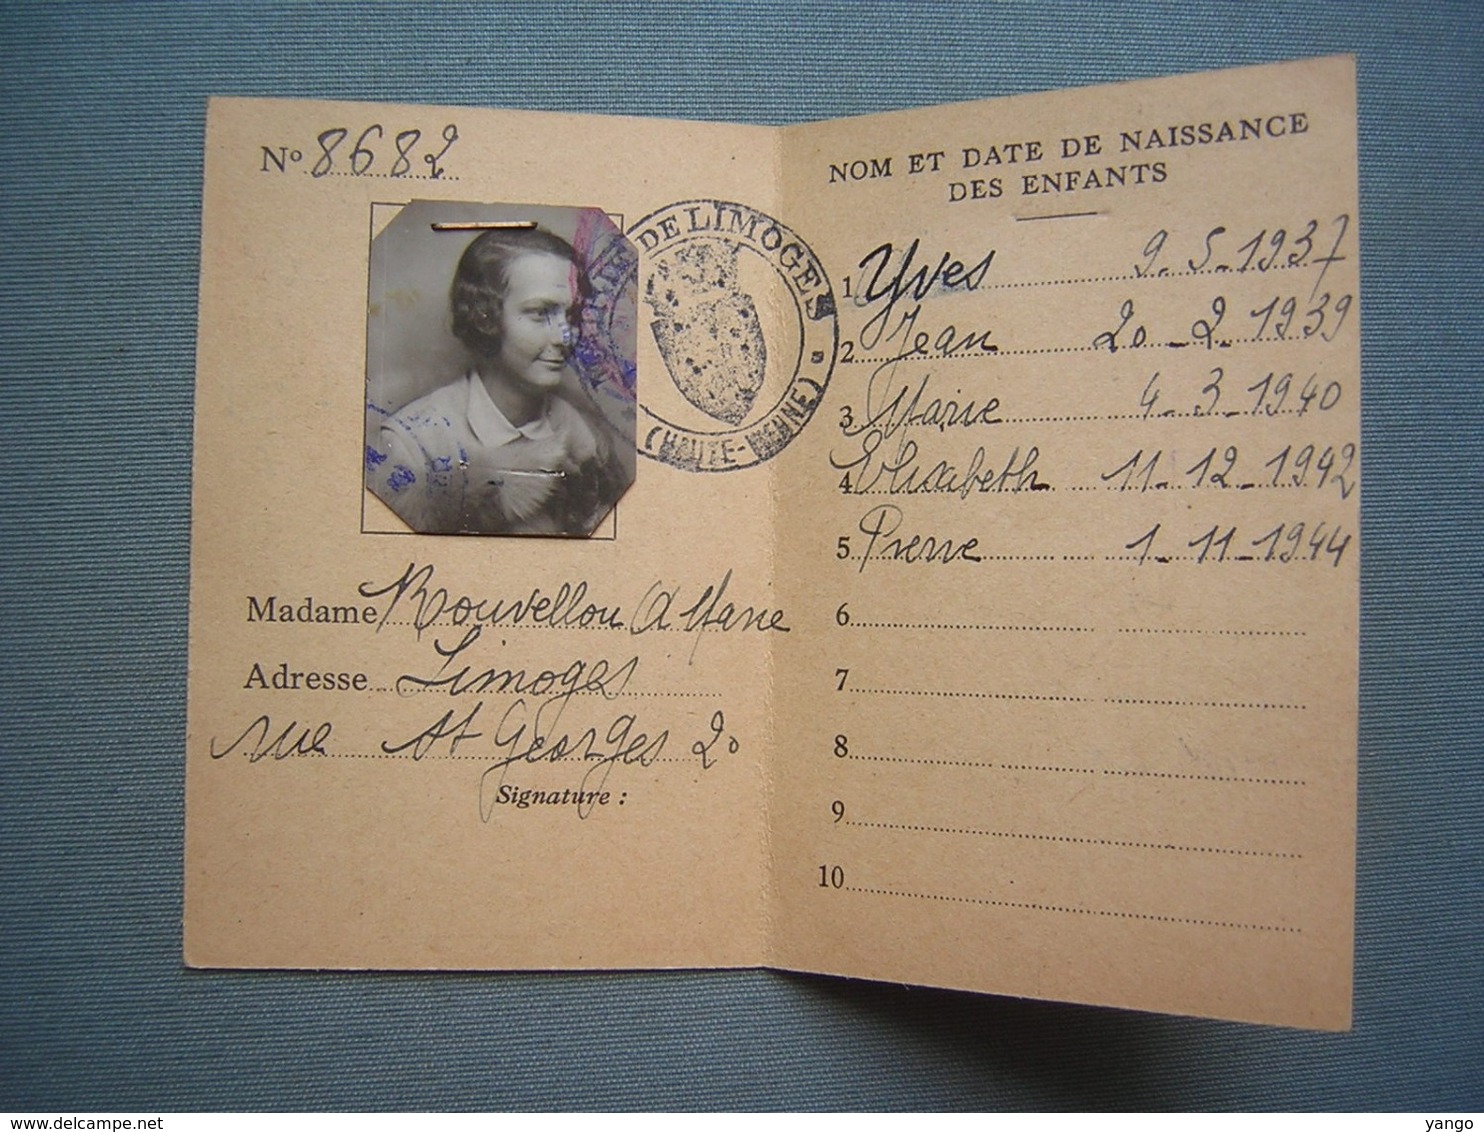 N° 8682
MAIRIE DE LIMOGES
(HAUTE-VIENNE)
Madame Rouvellou A Marie
Adresse Limoges
rue St Georges 20
Signature :
NOM ET DATE DE NAISSANCE
DES ENFANTS
1 Yves 9.5.1937
2 Jean 20-2.1939
3 Marie 4-3-1940
4 Elisabeth 11-12-1942
5 Pierre 1-11-1944
6
7
8
9
10
delcampe.net
yango